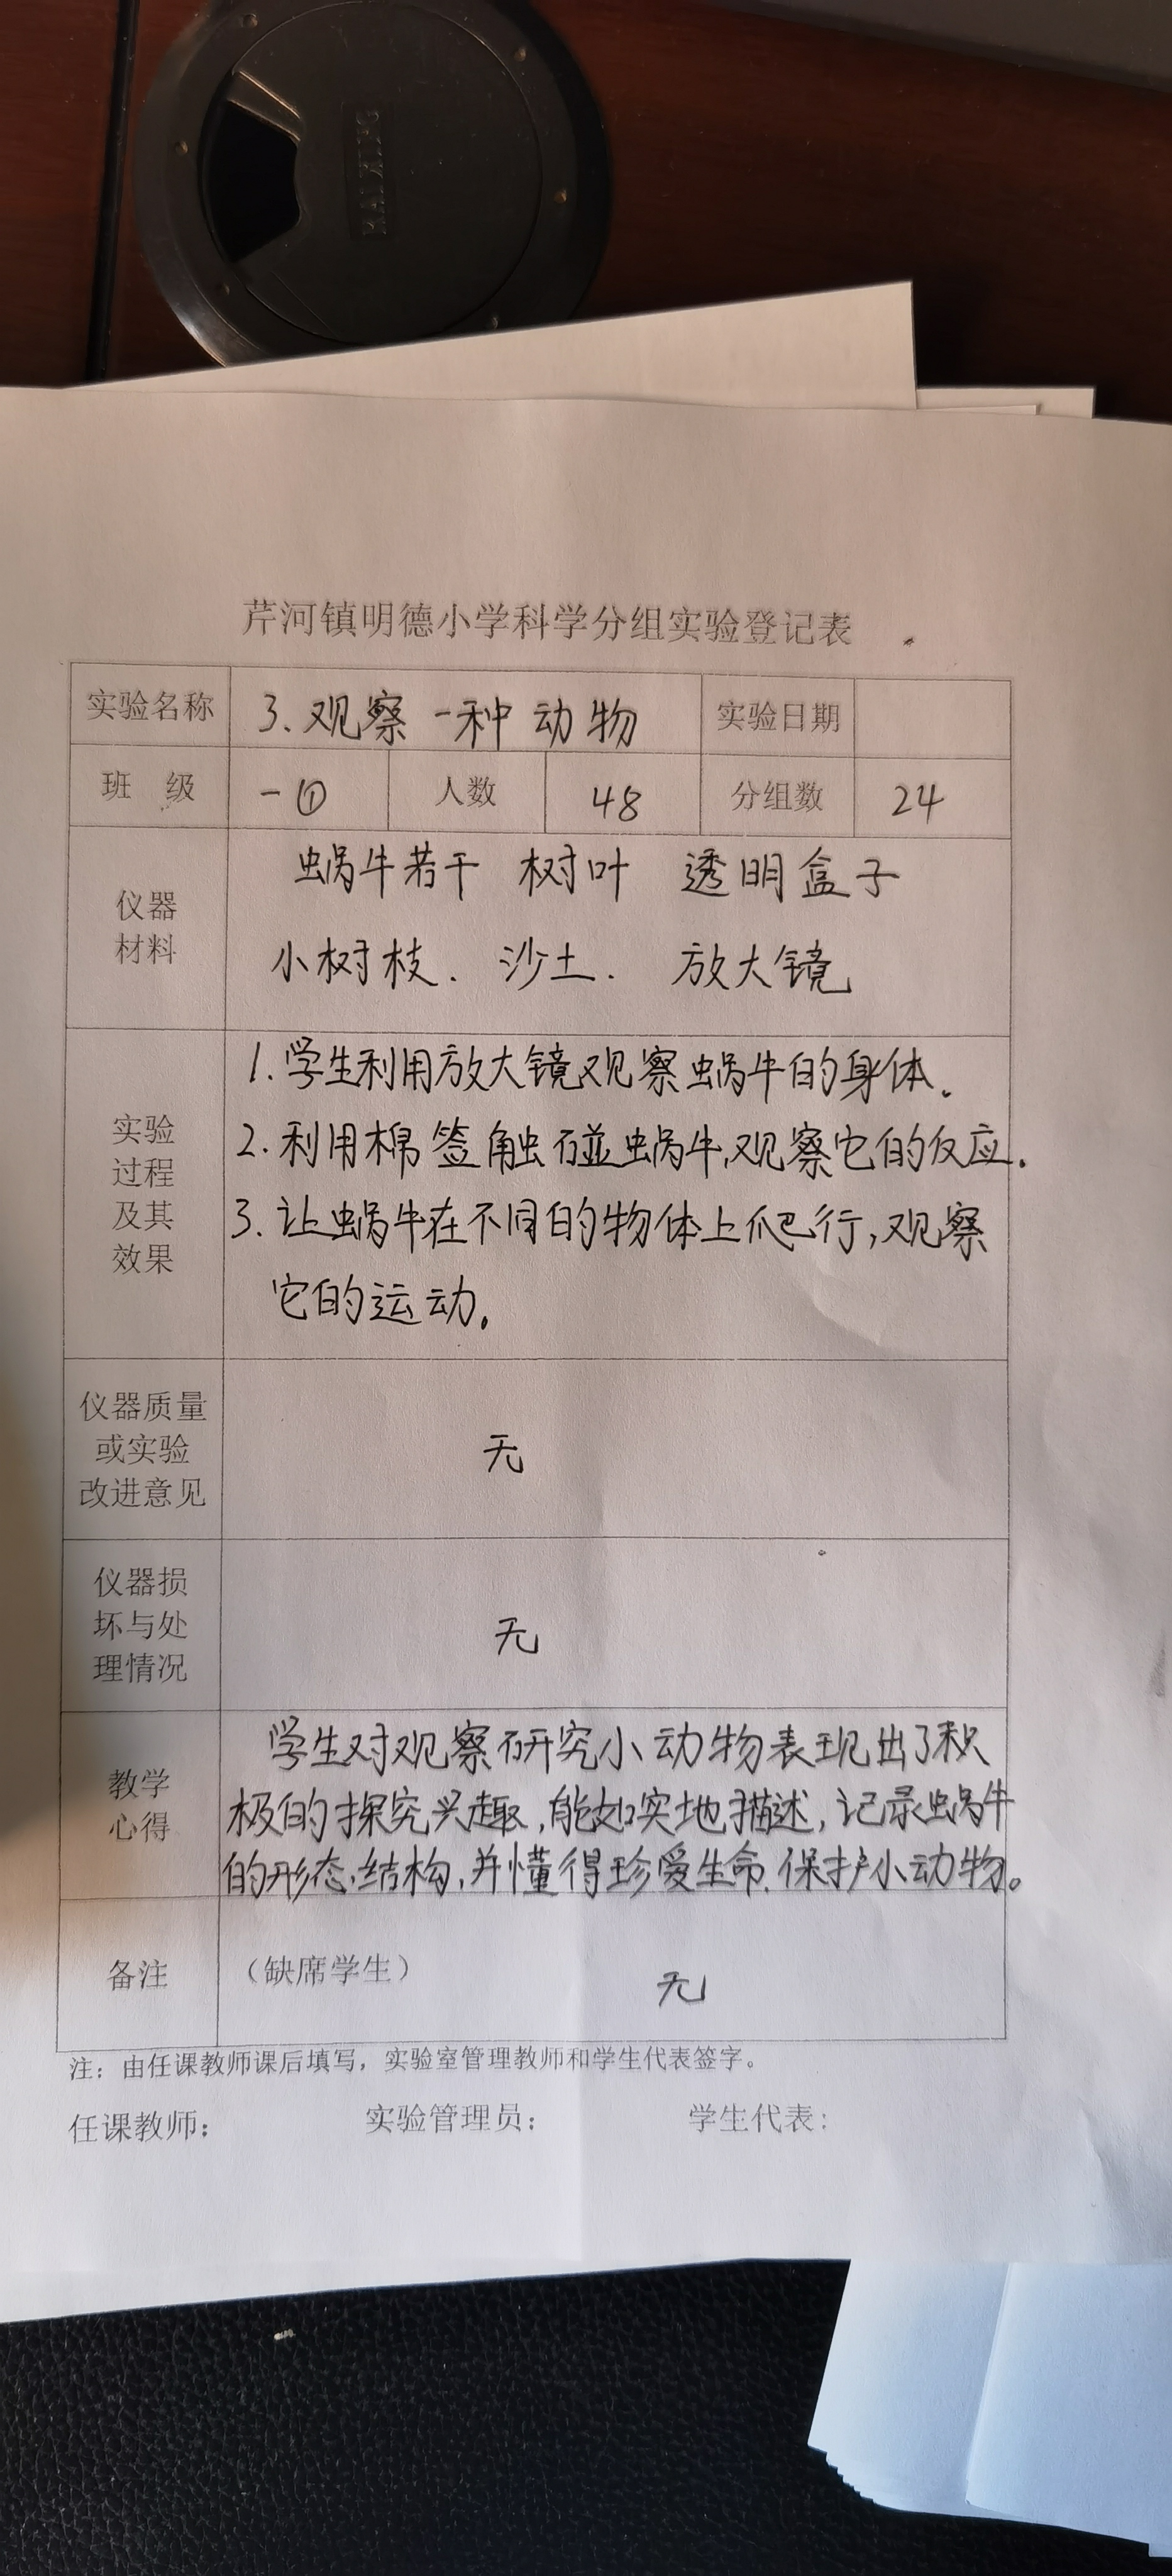 KAIXING
芹河镇明德小学科学分组实验登记表
实验名称 3.观察一种动物 实验日期
班 级 一① 人数 48 分组数 24
仪器
材料
蜗牛若干 树叶 透明盒子
小树枝. 沙土. 放大镜
实验
过程
及其
效果
1.学生利用放大镜观察蜗牛的身体。
2.利用棉签触碰蜗牛,观察它的反应.
3.让蜗牛在不同的物体上爬行,观察
它的运动。
仪器质量
或实验
改进意见
无
仪器损
坏与处
理情况
无
教学
心得
学生对观察研究小动物表现出了积
极的探究兴趣,能如实地描述,记录蜗牛
的形态、结构,并懂得珍爱生命.保护小动物。
备注 （缺席学生） 无
注：由任课教师课后填写，实验室管理教师和学生代表签字。
任课教师： 实验管理员： 学生代表：